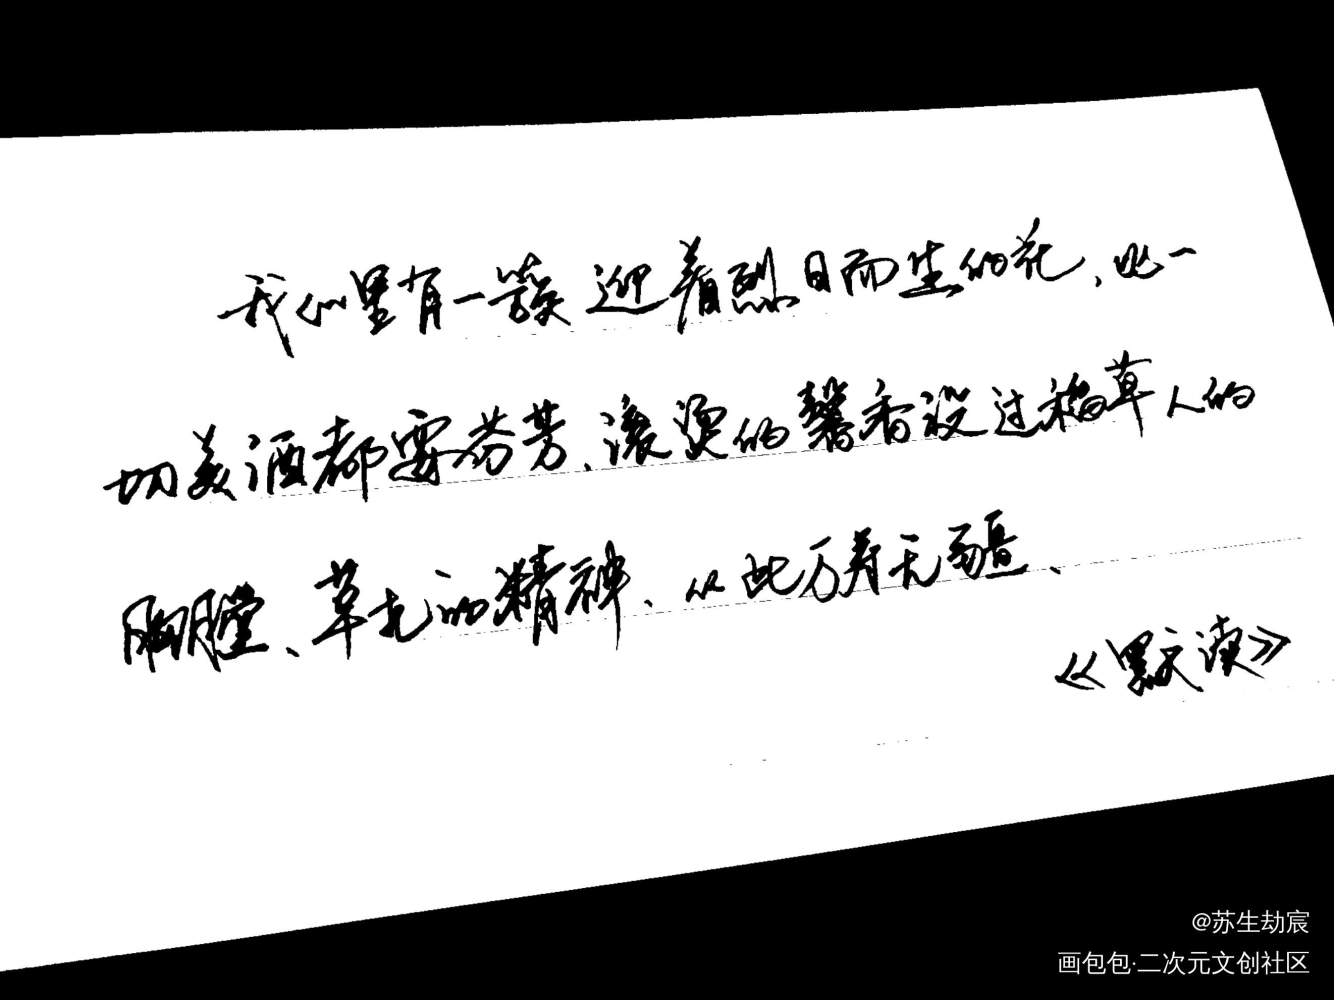 我心里有一簇迎着烈日而生的花、比一
切美酒都要芬芳、滚烫的馨香没过稻草人的
胸膛、草扎的精神、从此万寿无疆、
《默读》
@苏生劫宸
画包包·二次元文创社区